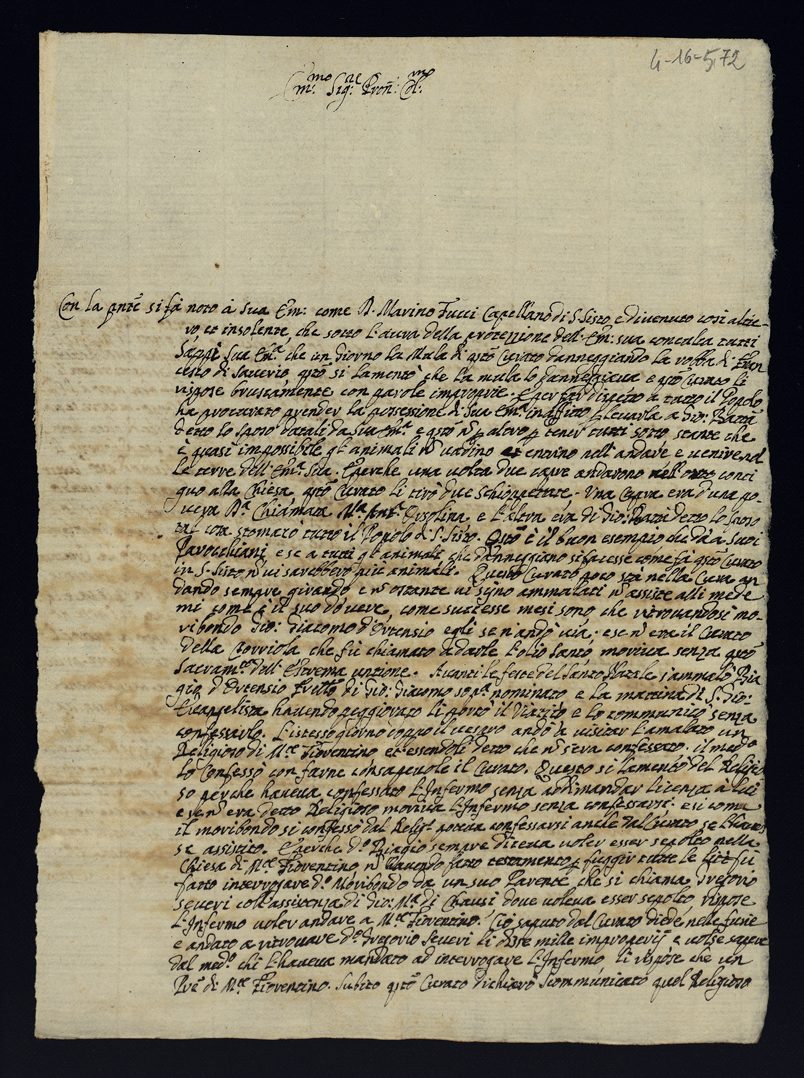 4-16-5,72
Em.mo Sig.re Pron: Col.mo
Con la pnte si fà noto à sua Em: come D. Marino Tucci Capellano di S. Sisto è divenuto così altie-
ro et insolente, che sotto l'aura della protezzione dell'Em: sua conculca tutti
Sappi sua Em.a che un giorno la Mula di qsto Curato danneggiando la robba di
di Saverio qsto si lamentò che la mula lo danneggiava e qsto Curato li
rispose bruscamente con parole improprie. E per far dispetto à tutto il Popolo
ha procurato prender la possessione di sua Em.a in affitto e levarla a Gio: Batta
detto lo sposo datali da sua Em.a e qsto nõ p altro p tener tutti sotto stante che
è quasi impossibile gl'animali nõ vadino et entrino nell'andare e venire nel
le terre dell'Em.a sua. E perche una volta due capre andarono nell'orto conti
guo alla Chiesa qsto Curato li tirò due schioppettate. Una Capra era d'una po
vera Chiamata M.a Ant.a Orsolina e l'altra era di Gio: Batta detto lo sposo
tal cosa stomacò tutto il Popolo di S. Sisto. Qsto è il buon esempio che dà à suoi
Parocchiani e se a tutti gl'animali che danneggiano si facesse come fà qsto Curato
in S. Sisto nõ vi sarebbero più animali. Questo Curato poco stà nella Cura an
dando sempre girando e nõ ostante vi sijno ammalati nõ assiste alli mede
mi come è il suo dovere, come successe mesi sono che ritrovandosi mo-
ribondo Gio: Giacomo d'Ortensio egli se n'andò via. e se nõ era il Curato
della Corviola che fù chiamato à darle l'olio Santo moriva senza qsto
Sacram.to dell'Estrema untione. Avanti le feste del Santo Natale s'ammalò Bia
gio d'Ortensio frēllo di Gio: Giacomo sop.a nominato e la mattina di S. Gio:
Evangelista havendo peggiorato li portò il Viatico e lo communicò senza
confessarlo. L'istesso giorno doppo il vespro andò à visitar l'amalato un
Religioso di M.te Fiorentino et essendoli detto che nõ s'era confessato. il med.o
lo Confessò con farne consapevole il Curato. Questo si lamentò del Religio
so perche haveva confessato l'Infermo senza addimandar licenza à lui
e se nõ era detto Religioso moriva l'Infermo senza confessarsi. e si come
il moribondo si confessò dal Relig.o poteva confessarsi anche dal Curato se l'haves
se assistito. E perche d.o Biagio sempre diceva voler esser sepolto nella
Chiesa di M.te Fiorentino nõ havendo fatto testamento p fuggir tutte le liti fù
fatto interrogare d.o Moribondo da un suo Parente che si chiama Gregorio
Severi coll'assistenza di Gio: M.a di Chausi dove voleva esser sepolto rispose
l'Infermo voler andare a M.te Fiorentino. Ciò saputo dal Curato diede nelle furie
e andato a ritrovare d.o Gregorio Severi li disse mille improperij e volse sapere
dal med.o chi l'haveva mandato ad interrogare l'Infermo li rispose che un
Prē di M.te Fiorentino. Subito qsto Curato dichiarò scommunicato quel Religioso